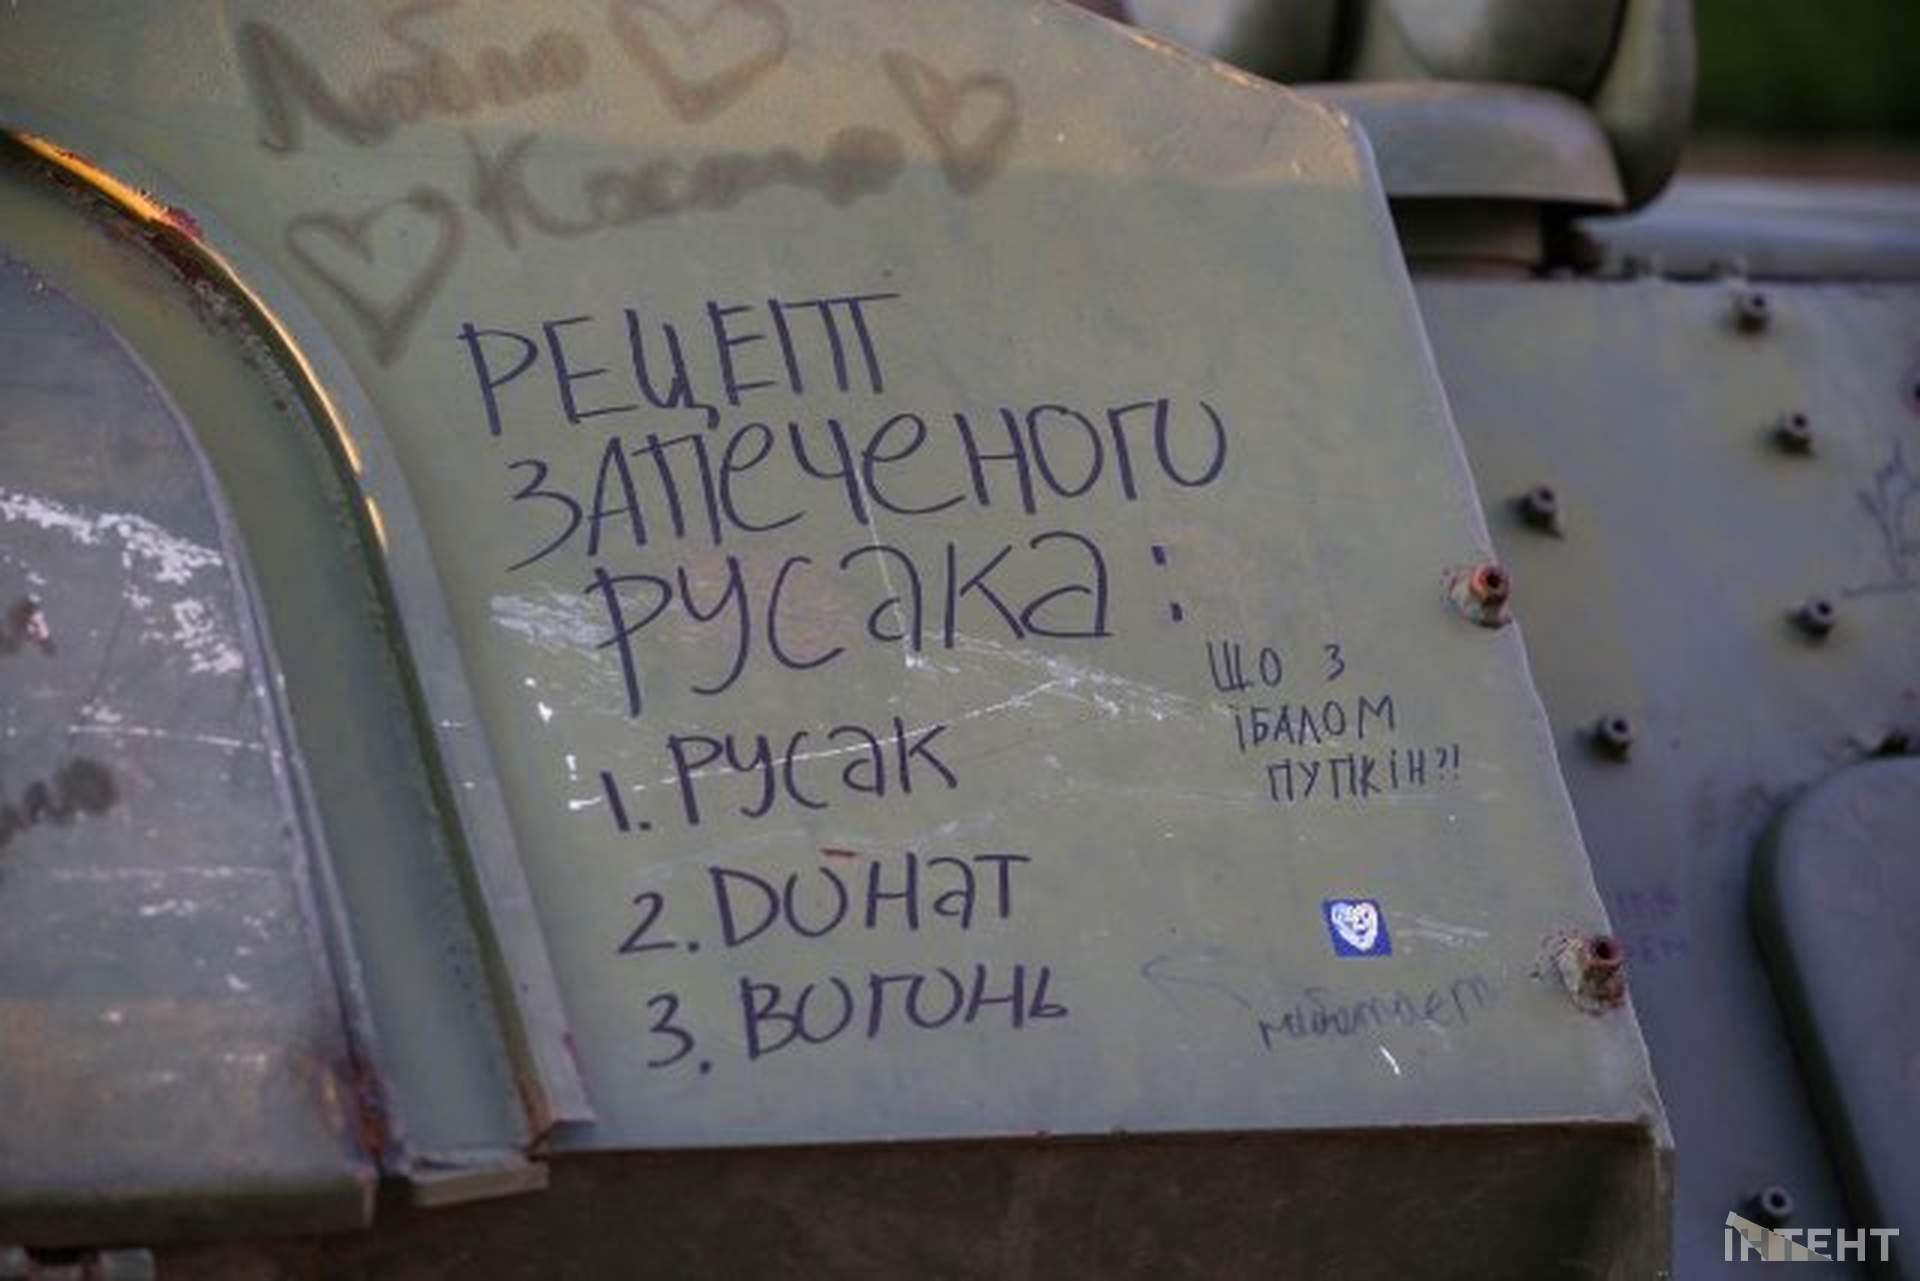 Люблю
Костю
РЕЦЕПТ
ЗАПЕЧЕНОГО
РУСАКА:
1. РУСАК
ЩО З
ЇБАЛОМ
ПУПКІН?!
2. ДОНАТ
3. ВОГОНЬ
ІНТЕНТ